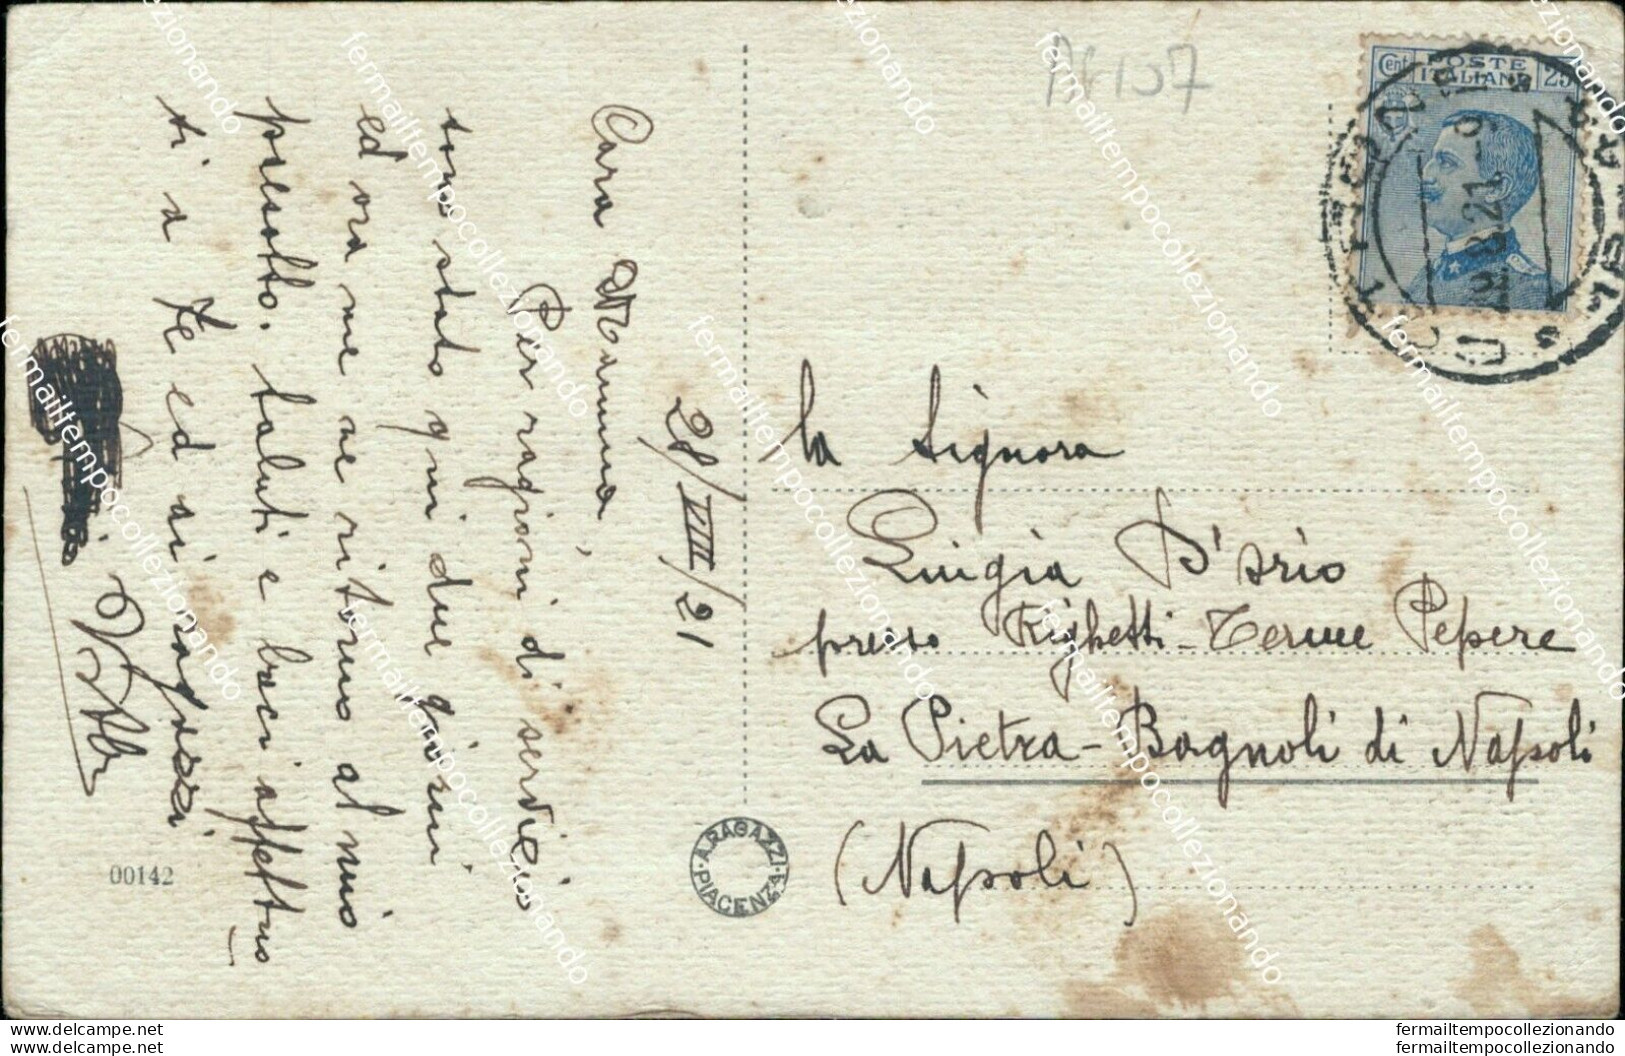 28/VIII/21
Cara Mamma,
Per ragioni di servizio
sono stato qui due giorni
ed ora me ne ritorno al mio
presotto. Saluti e baci affettuo
si a Te ed ai ragazzi
00142
A. RAGAZZI E. PIACENZA
Cent POSTE ITALIANE 25
29.8.21
la Signora
Luigia D'Ario
presso Righetti - Terme Pepere
La Pietra - Bagnoli di Napoli
(Napoli)
fermailtempocollezionando
fermailtempocollezionando
fermailtempocollezionando
fermailtempocollezionando